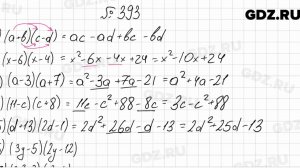 № 393
GDZ.RU
) (a+b)(c-d) = ac - ad + bc - bd
) (x-6)(x-4) = x² - 6x - 4x + 24 = x² - 10x + 24
) (a-3)(a+7) = a² - 3a + 7a - 21 = a² + 4a - 21
) (11-c)(c+8) = 11c - c² + 88 - 8c = 3c - c² + 88
) (d+13)(2d-1) = 2d² + 26d - d - 13 = 2d² + 25d - 13
) (3y-5)(2y-12)
GDZ.RU